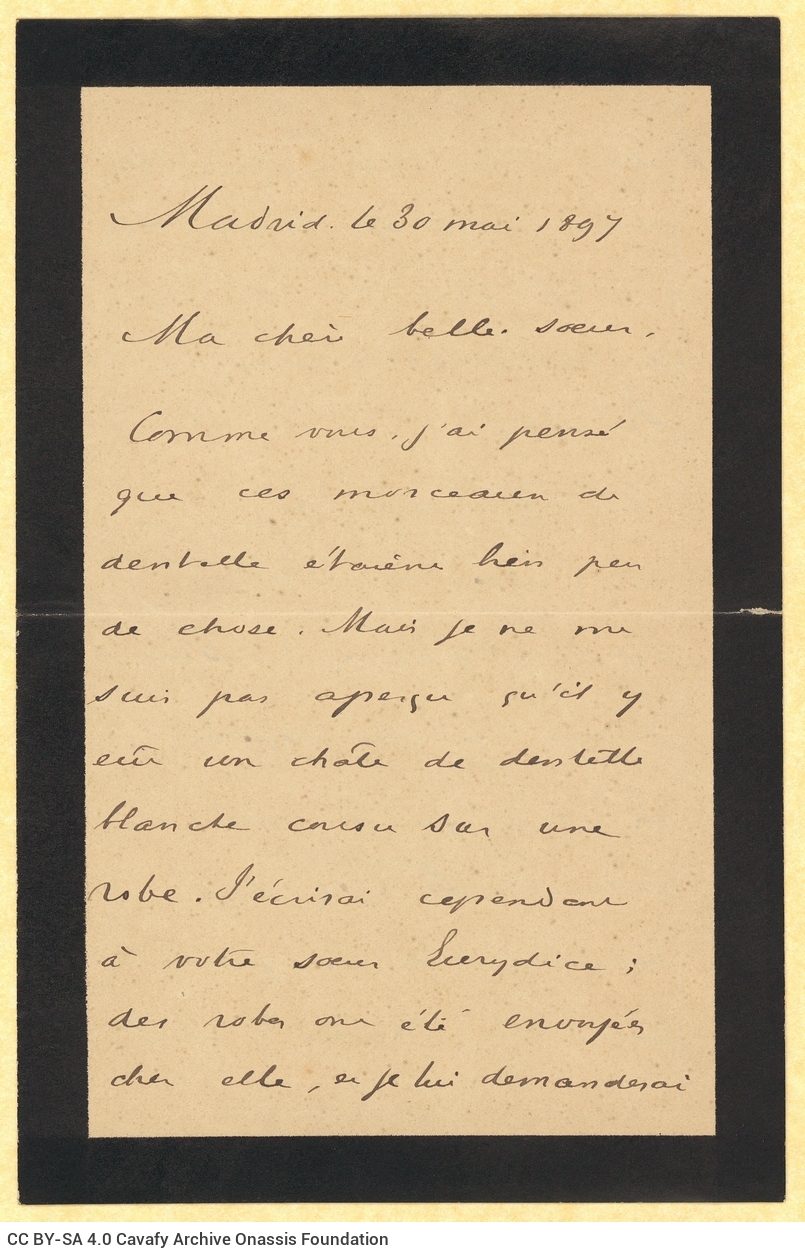 Madrid. le 30 mai 1897
Ma chère belle-sœur,
Comme vous, j'ai pensé
que ces morceaux de
dentelle étaient bien peu
de chose. Mais je ne me
suis pas aperçu qu'il y
eût un châle de dentelle
blanche cousu sur une
robe. J'écrirai cependant
à votre sœur Eurydice ;
des robes ont été envoyées
chez elle, et je lui demanderai
CC BY-SA 4.0 Cavafy Archive Onassis Foundation